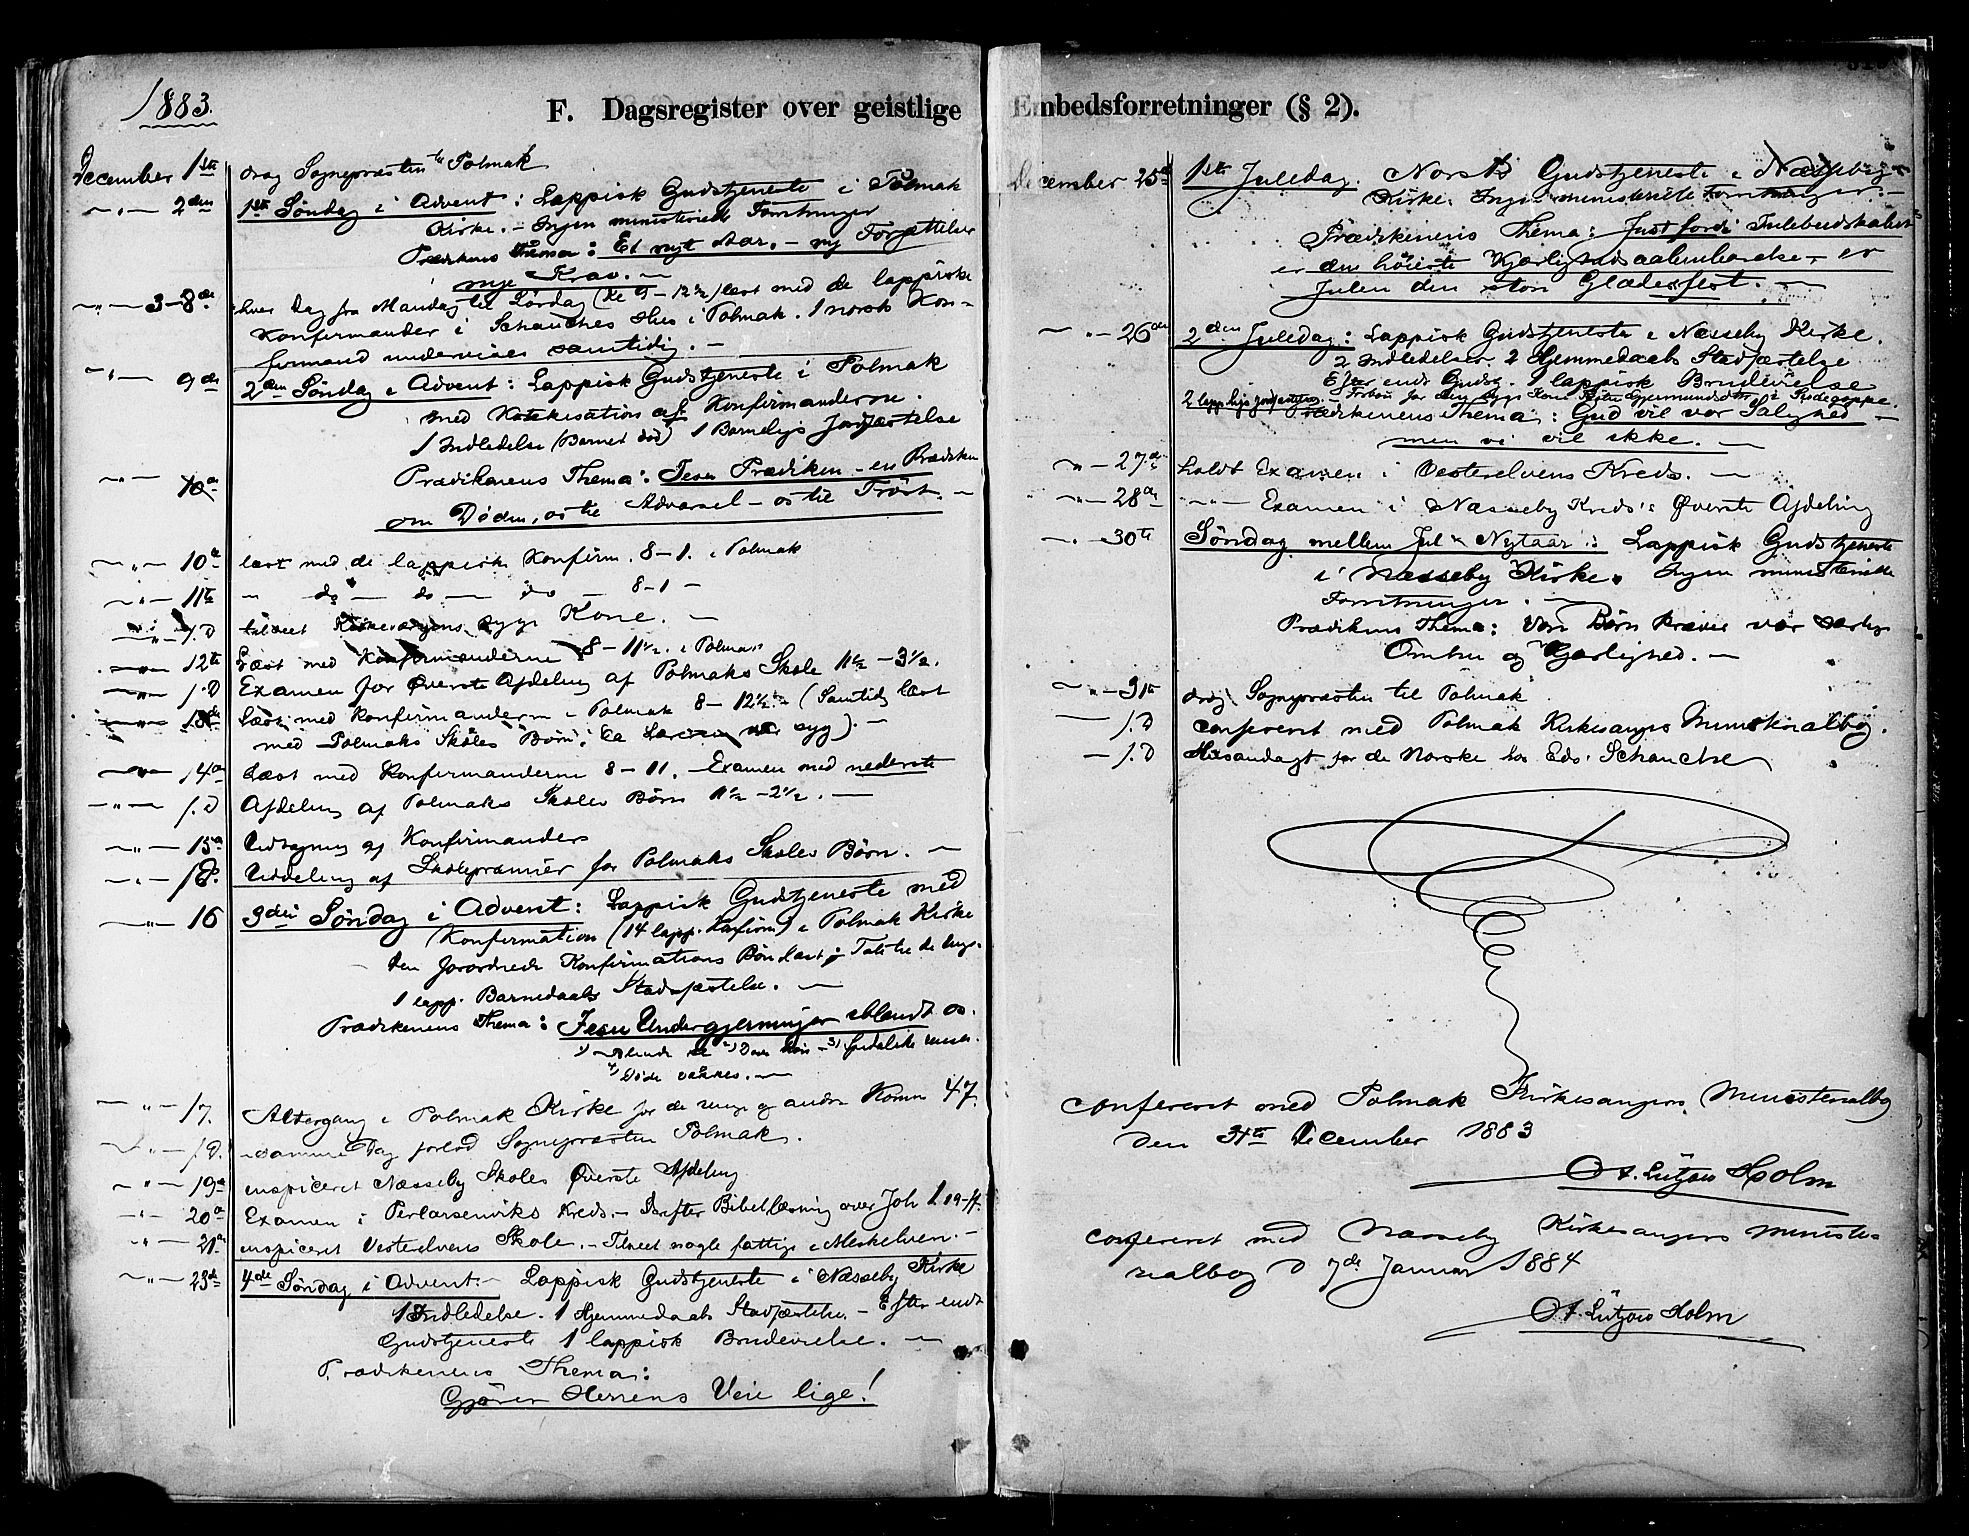 1883.
F. Dagsregister over geistlige Embedsforretninger (§ 2).
December 1ste drog Sognepræsten til Polmak
— " — 2den 1ste Søndag i Advent: Lappisk Gudstjeneste i Polmak
Kirke. - Ingen ministerielle Forretninger
Prædikens Thema: Et nyt Aar. - ny Forjættelse
nye Krav. —
— " — 3-8de hver Dag fra Mandag til Lørdag (Kl 9-12½) læst med de lappiske
Konfirmander i Schanches Hus i Polmak. 1 norsk Kon-
firmand undervises samtidig. —
— " — 9de 2den Søndag i Advent: Lappisk Gudstjeneste i Polmak
med Katekisation af Konfirmanderne.
1 Indledelse (Barnet død) 1 Barneligs Jordfæstelse
Prædikenens Thema: Jesu Prædiken - en Prædiken
om Døden, os til Advarsel - os til Trøst. —
— " — 10de læst med de lappiske Konfirm. 8-1. i Polmak
— " — 11te " do — do — do — 8-1 —
— " — s.D. tilseet Kirkeværgens syge Kone. —
— " — 12te Læst med Konfirmanderne 8-11½. i Polmak
— " — s.D Examen for Øverste Afdeling af Polmaks Skole 11½-3½.
— " — 13de Læst med Konfirmanderne i Polmak 8-12½ (Samtidig læst
med Polmaks Skoles Børn, da Læreren var syg). —
— " — 14de Læst med Konfirmanderne 8-11. - Examen med nederste
— " — s.D Afdeling af Polmaks Skoles Børn 11½-2½. —
— " — 15de Udspørgning af Konfirmanders
— " — s.D. Uddeling af Skolepræmier for Polmaks Skoles Børn. —
— " — 16 3die Søndag i Advent: Lappisk Gudstjeneste med
Konfirmation (14 lapp. Konfirm.) i Polmak Kirke
Den forordnede Konfirmations Bøn læst; Tale til de unge.
1 lapp. Barnedaabs Stadfæstelse. —
Prædikenens Thema: Jesu Undergjerninger iblandt os.
1) Blinde se 2) Døve høre - 3) Spedalske renses
4) Døde vækkes. —
— " — 17. Altergang i Polmak Kirke for de unge og andre Komm 47.
— " — s.D. samme Dag forlod Sognepræsten Polmak.
— " — 19de inspiceret Næsseby Skoles Øverste Afdeling
— " — 20de Examen i Perlarsenviks Kreds. - Derefter Bibellæsning over Joh 1.19-ff.
— " — 21de inspiceret Vesterelvens Skole. - Tilseet nogle fattige i Meskelven. —
— " — 23de 4de Søndag i Advent. - Lappisk Gudstjeneste i Næsseby Kirke
1 Indledelse. 1 Hjemmedaabs Stadfæstelse. - Efter endt
Gudstjeneste 1 lappisk Brudevielse. —
Prædikenens Thema:
Gjører Herrens Veie lige!
December 25de 1ste Juledag. Norsk Gudstjeneste i Næsseby
Kirke. Ingen ministerielle Forretninger. —
Prædikenens Thema: Just fordi Julebudskabet
er den høieste Kjærlighedsaabenbarelse, er
Julen den store Glædesfest. —
— " — 26de 2den Juledag: Lappisk Gudstjeneste i Næsseby Kirke.
2 Indledelser 2 Hjemmedaabs Stadfæstelse
Efter endt Gudstj. 1 lappisk Brudevielse
2 lapp. ligs jordfæstelse. - Forbøn for den syge Kone
Prædikenens Thema: Gud vil vor Salighed —
men vi vil ikke. —
— " — 27de holdt Examen i Vesterelvens Kreds. —
— " — 28de — " — Examen i Næsseby Kreds's Øverste Afdeling
— " — 30te Søndag mellem Jul & Nytaar: Lappisk Gudstjeneste
i Næsseby Kirke. Ingen ministerielle
Forretninger. —
Prædikens Thema: Vore Børn kræve vor særlige
Omhu og Kjærlighed. —
— " — 31te drog Sognepræsten til Polmak
— s.D confereret med Polmak Kirkesangers Ministerialbog.
— s.D Husandagt for de Norske hos Edv. Schanche
confereret med Polmak Kirkesangers Ministerialbog
den 31te December 1883
O. A. Lützow Holm
confereret med Næsseby Kirkesangers Ministe-
rialbog d 7de Januar 1884
O. A. Lützow Holm